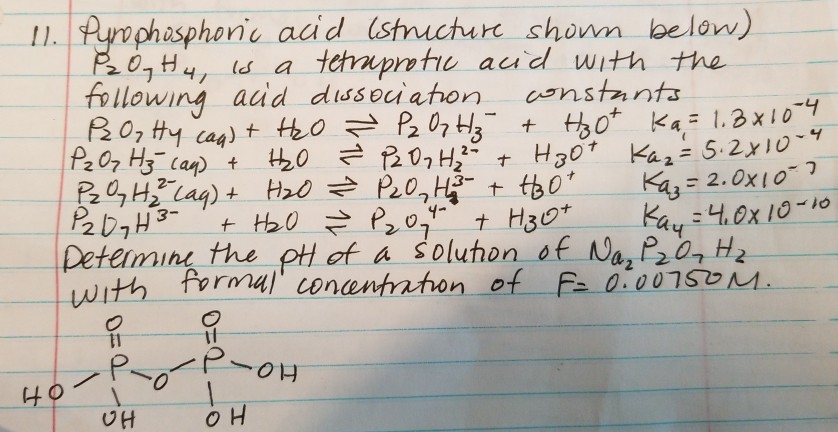 11. Pyrophosphoric acid (structure shown below)
P₂O₇H₄, is a tetraprotic acid with the
following acid dissociation constants
P₂O₇H₄ (aq) + H₂O ⇌ P₂O₇H₃⁻ + H₃O⁺ Ka₁ = 1.3x10⁻⁴
P₂O₇H₃⁻(aq) + H₂O ⇌ P₂O₇H₂²⁻ + H₃O⁺ Ka₂ = 5.2x10⁻⁴
P₂O₇H₂²⁻(aq) + H₂O ⇌ P₂O₇H³⁻ + H₃O⁺ Ka₃ = 2.0x10⁻⁷
P₂O₇H³⁻ + H₂O ⇌ P₂O₇⁴⁻ + H₃O⁺ Ka₄ = 4.0x10⁻¹⁰
Determine the pH of a solution of Na₂P₂O₇H₂
with formal concentration of F= 0.00750M.
O O
P O P OH
HO
OH OH